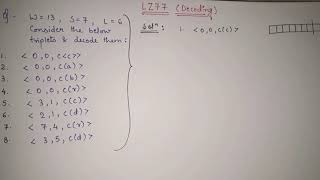 LZ77 (Decoding)
Q- W=13, S=7, L=6
Consider the below
triplets & decode them:
1. <0,0,c<c)>
2. <0,0,c(a)>
3. <0,0,c(b)>
4. <0,0,c(r)>
5. <3,1,c(c)>
6. <2,1,c(d)>
7. <7,4,c(r)>
8. <3,5,c(d)>
Soln: 1. <0,0,c(c)>